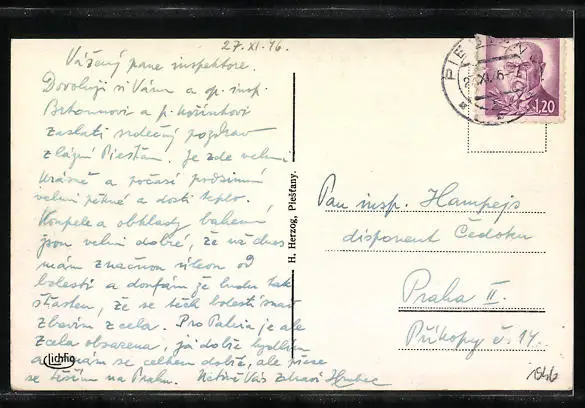 27.XI.46.
Vážený pane inspektore.
Dovoluji si Vám a op. insp.
a p. Kořínkovi
zaslati srdečný pozdrav
z lázní Piešťan. Je zde velmi
krásně a počasí podzimní
velmi pěkné a dosti teplo.
Koupele a obklady bahem
jsou velmi dobré, že už dnes
mám značnou úlevu od
bolestí a doufám že budu tak
šťasten, že se těch bolestí snad
zbavím zcela. Pro Palera je ale
zcela obsazena, já dobře bydlím
a mám se celkem dobře, ale přece
se těším na Prahu. Uctivě Vás zdraví
H. Herzog, Piešťany.
Lichtig
PIEŠŤANY
XI. 46
1.20
Pan insp. Hampejs
disponent Čedoku
Praha II.
Příkopy č. 14.